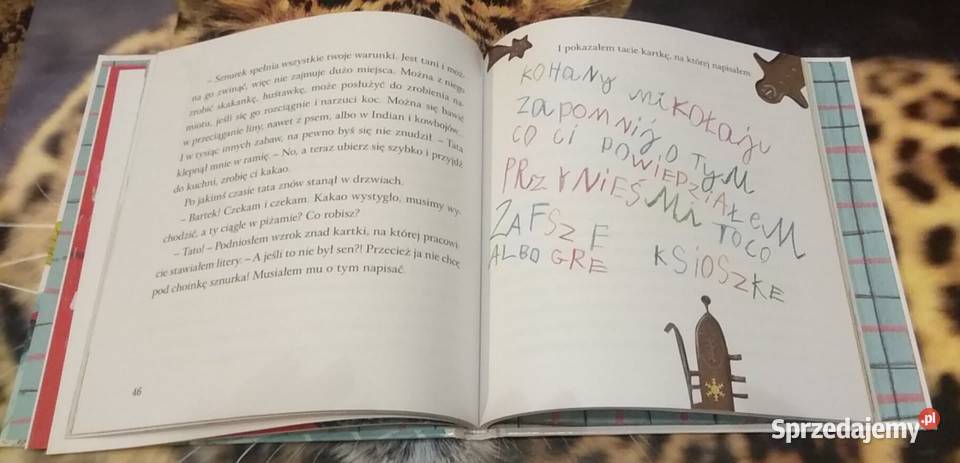 – Sznurek spełnia wszystkie twoje warunki. Jest tani i moż-
na go zwinąć, więc nie zajmuje dużo miejsca. Można z niego
zrobić skakankę, huśtawkę, może posłużyć do zrobienia na-
miotu, jeśli się go rozciągnie i narzuci koc. Można się bawić
w przeciąganie liny, nawet z psem, albo w Indian i kowbojów.
I w tysiąc innych zabaw, na pewno byś się nie znudził. – Tata
klepnął mnie w ramię. – No, a teraz ubierz się szybko i przyjdź
do kuchni, zrobię ci kakao.
Po jakimś czasie tata znów stanął w drzwiach.
– Bartek! Czekam i czekam. Kakao wystygło, musimy wy-
chodzić, a ty ciągle w piżamie? Co robisz?
– Tato! – Podniosłem wzrok znad kartki, na której pracowi-
cie stawiałem litery. – A jeśli to nie był sen?! Przecież ja nie chcę
pod choinkę sznurka! Musiałem mu o tym napisać.
46
I pokazałem tacie kartkę, na której napisałem:
KOHANY MIKOŁAJU
ZAPOMNIJ O TYM
CO CI POWIEDZIAŁEM
PRZYNIEŚ MI TO CO
ZAFSZE KSIOSZKE
ALBO GRE
Sprzedajemy.pl